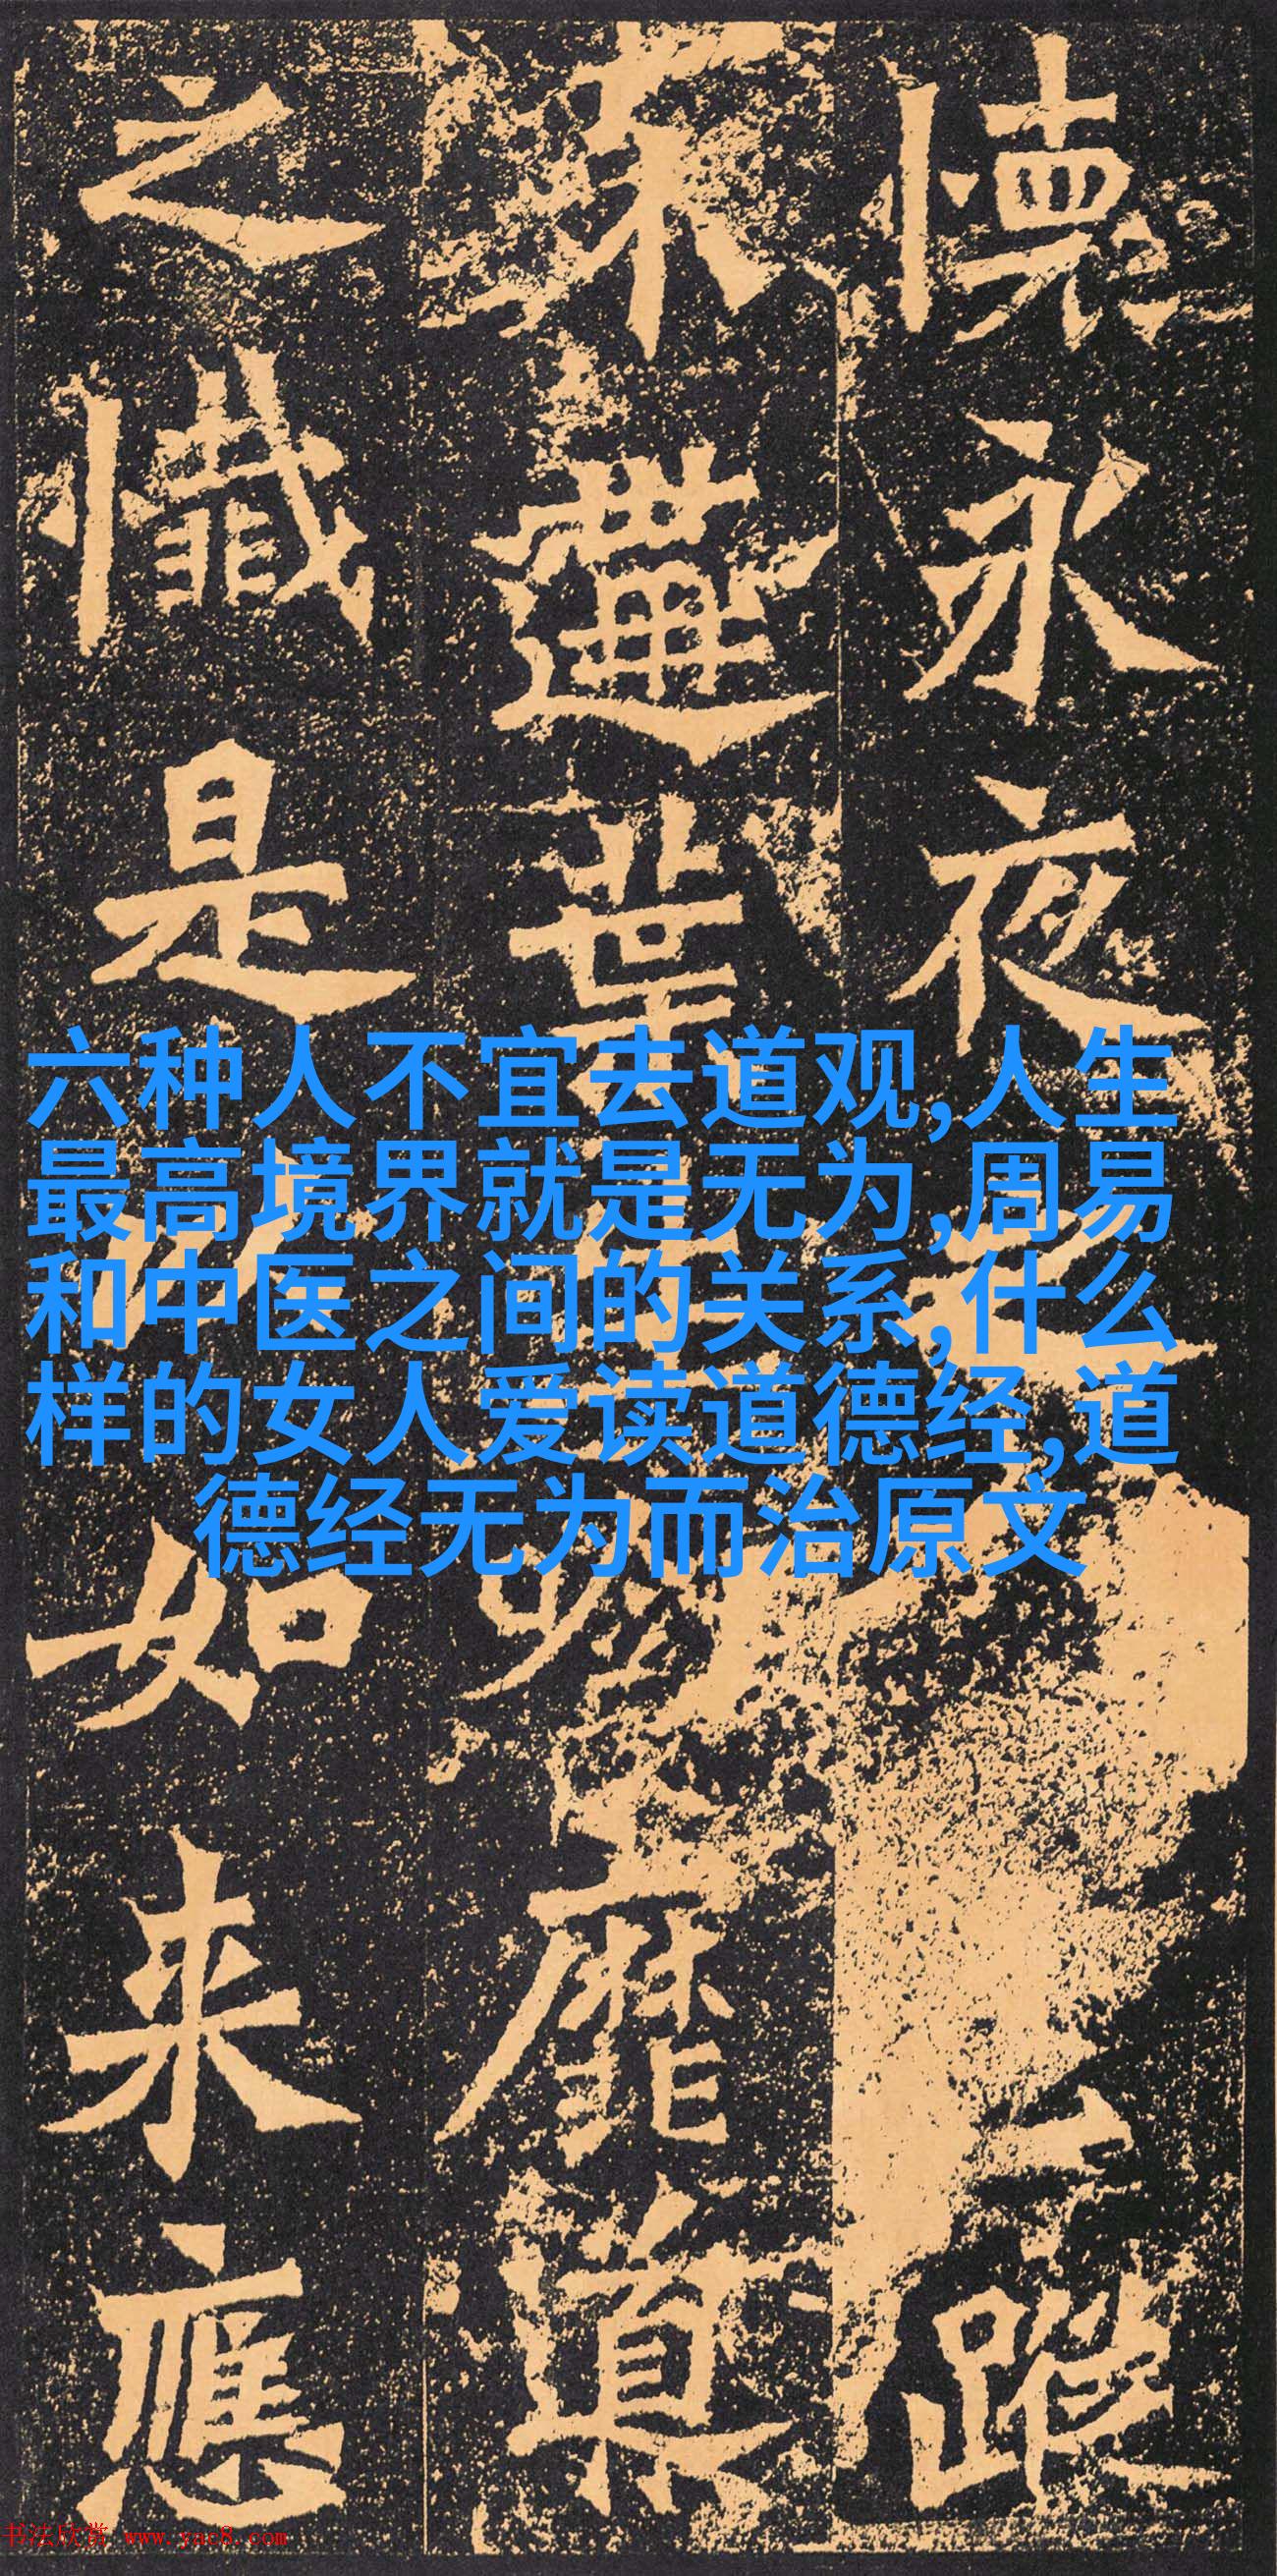 懷永夜
蹤
葉
靡導
之懺是
如来應
六种人不宜去道观,人生
最高境界就是无为,周易
和中医之间的关系,什么
样的女人爱读道德经,道
德经无为而治原文
书法欣赏 www.yac8.com